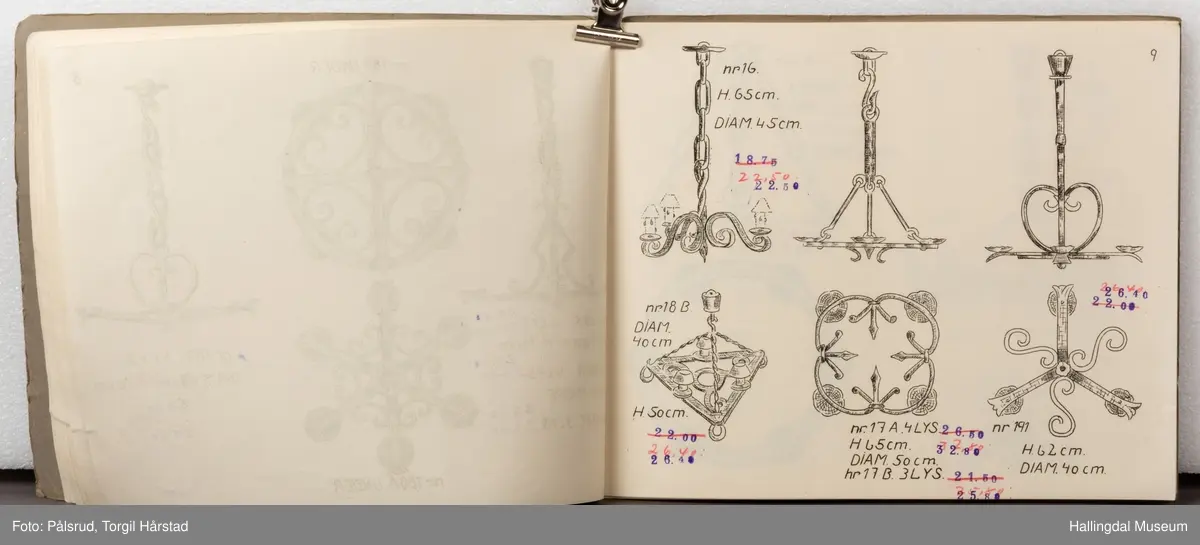 9
nr 16.
H. 65cm.
DIAM. 45cm.
18.75
22,50
22.50
nr 18 B.
DIAM.
40cm
H 50cm.
22.00
26.40
26.40
nr. 17 A. 4 LYS
H. 65cm.
DIAM. 50cm.
nr 17 B. 3 LYS.
26.50
32.80
21.50
25.80
26.40
22.00
nr 191
H. 62cm.
DIAM. 40cm.
Foto: Pålsrud, Torgil Hårstad
Hallingdal Museum